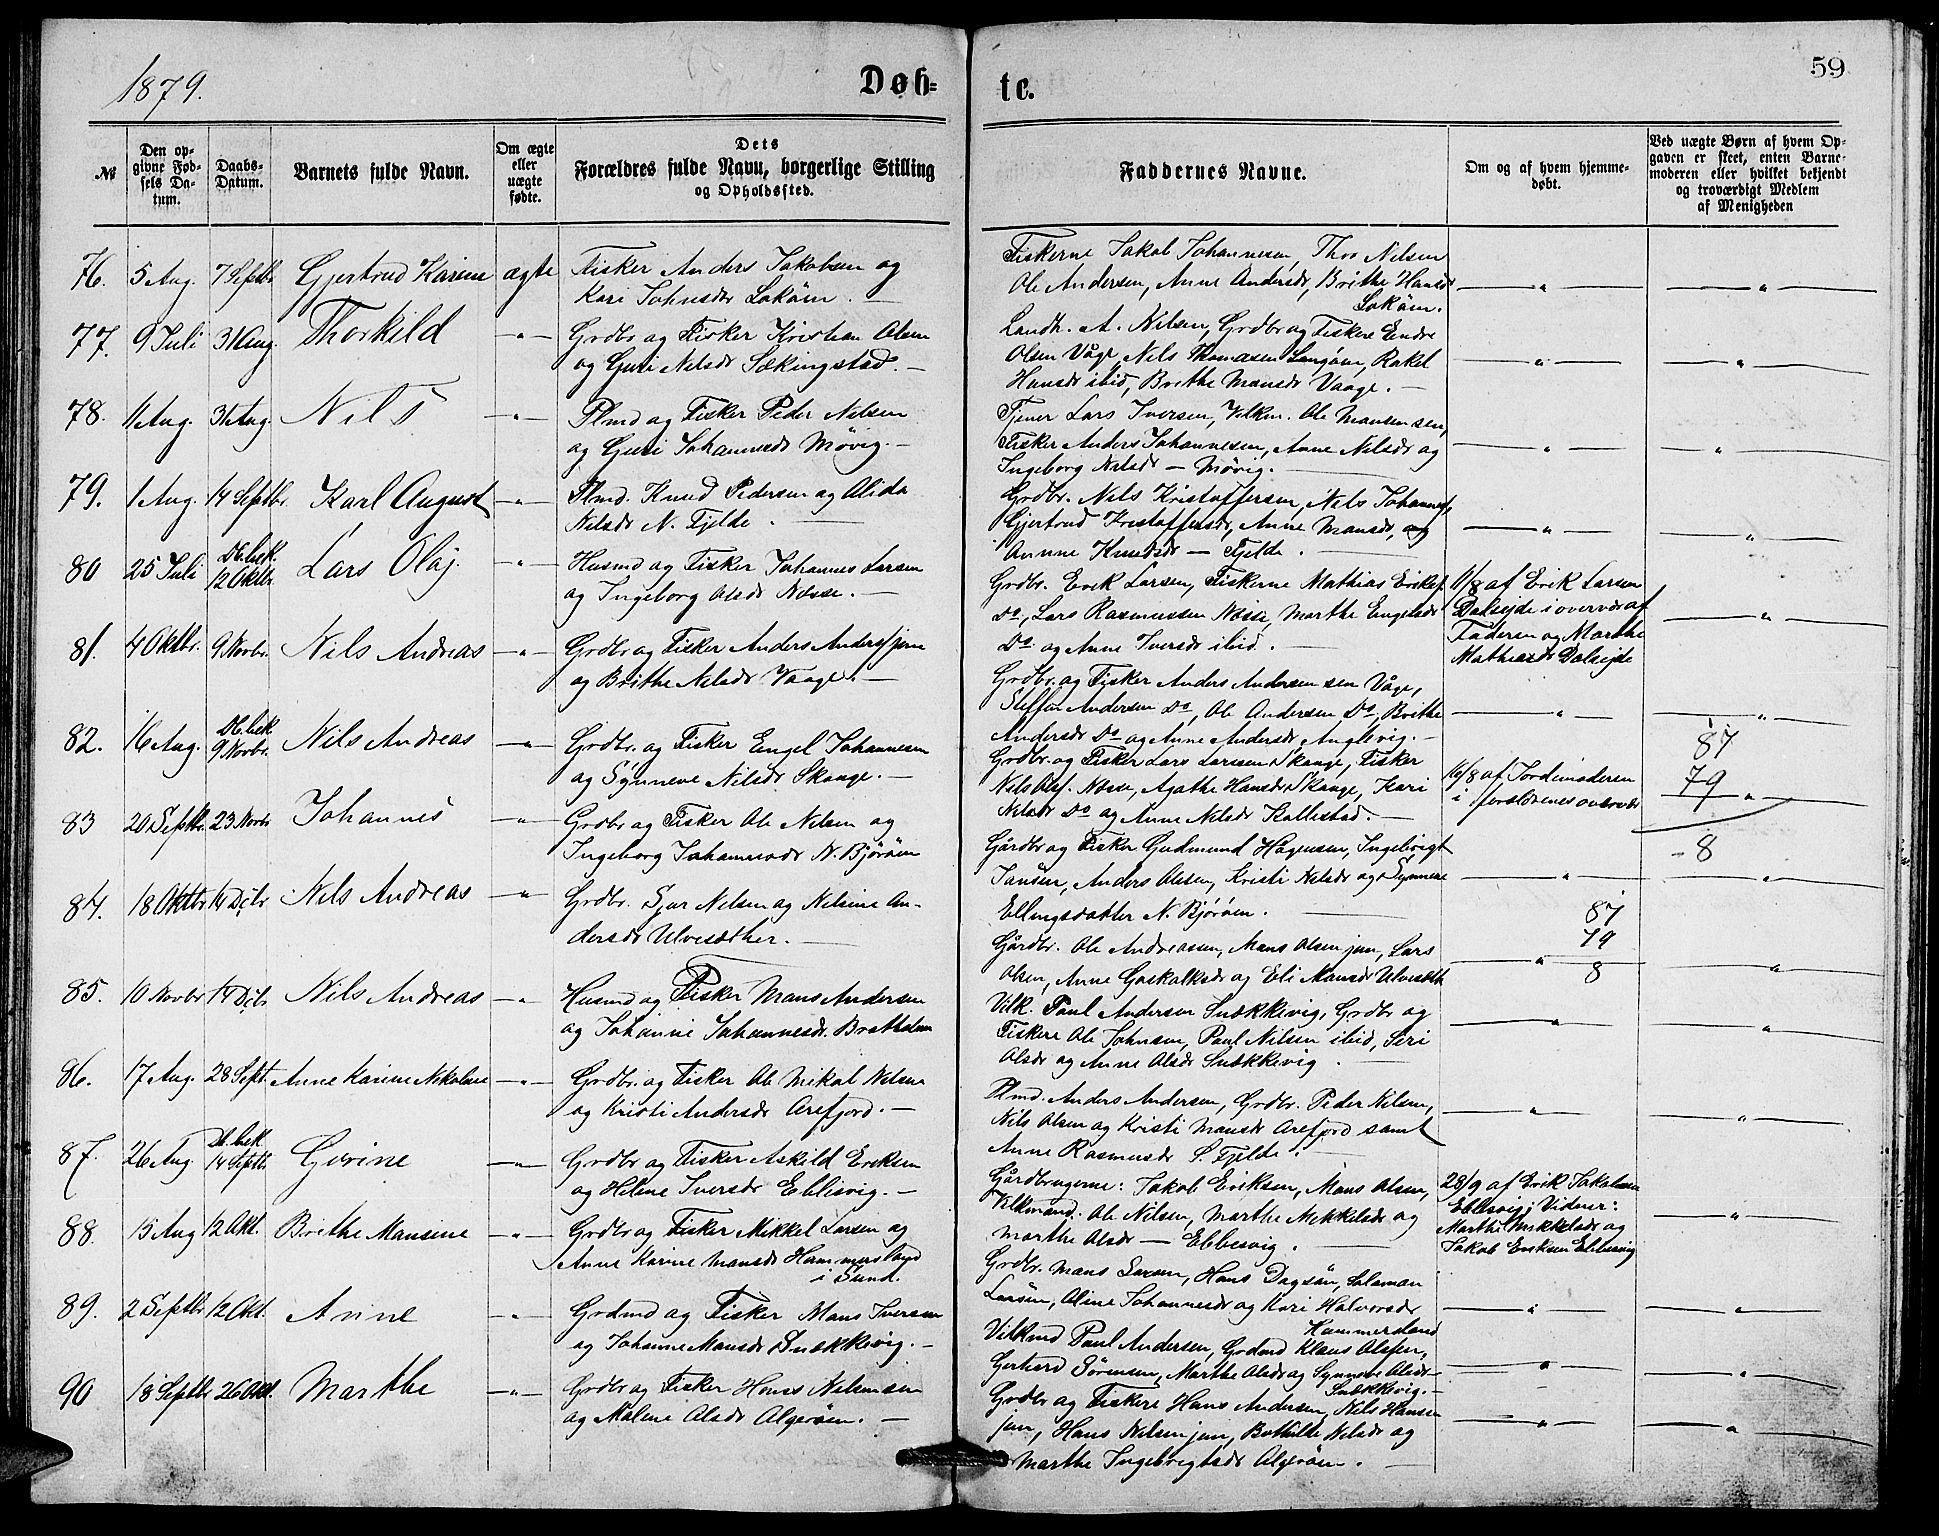 1879.
Døb=
te.
59
№
Den op-
givne Fød-
sels Da-
tum.
Daabs-
Datum.
Barnets fulde Navn.
Om ægte
eller
uægte
fødte.
Dets
Forældres fulde Navn, borgerlige Stilling
og Opholdssted.
Faddernes Navne.
Om og af hvem hjemme-
døbt.
Ved uægte Børn af hvem Op-
gaven er skeet, enten Barne-
moderen eller hvilket bekjendt
og troværdigt Medlem
af Menigheden
76. 5 Aug. 7 Septbr Gjertrud Karine ægte Fisker Anders Jakobsen og
Kari Johnsdr Lokøen. —
Fiskerne Jakob Johannesen, Thoo Nilsen
Ole Andersen, Anne Andersdr, Brithe Hansdr
Lokøen.
— " —
— " —
77. 9 Juli 31 Aug. Thorkild — " — Grdbr og Fisker Kristian Olsen
og Guri Nilsdr Sækingstad. —
Landh. A. Nilsen, Grdbr og Fiskere Endre
Olsen Våge, Nils Thomassen Langøen, Rakel
Hansdr ibid, Brithe Mansdr Vaage. —
— " —
— " —
78. 11 Aug. 31 Aug. Nils — " — Plmd og Fisker Peder Nilsen
og Guri Johannesdr Møvig. —
Tjener Lars Iversen, Vilkm. Ole Mansen sen,
Fisker Anders Johannesen, Anne Nilsdr og
Ingeborg Nilsdr — Møvig. —
— " —
— " —
79. 1 Aug. 14 Septbr. Karl August — " — Plmd. Knud Pedersen og Alida
Nilsdr N. Fjelde. —
Grdbr. Nils Kristoffersen, Nils Johannes,
Gjertrud Kristoffersdr, Anne Mansdr, og
Annne Knudsdr — Fjelde. —
— " —
— " —
80 25 Juli Db. bek.
12 Oktbr Lars Olaj. — " — Husmd og Fisker Johannes Larsen
og Ingeborg Olsdr Nøsse. —
Grdbr. Erik Larsen, Fiskerne Mathias Eriks.
Do, Lars Rasmussen Nøsse, Marthe Engelsdr
Do. og Anne Iversdr ibid. —
11/8 af Erik Larsen
Dalsejde i overvær af
Faderen og Marthe
Mathiasdr Dalsejde
— " —
81. 4 Oktbr. 9 Novbr. Nils Andreas — " — Grdbr og Fisker Anders Anders. jun
og Brithe Nilsdr Vaage. —
Grdbr. og Fisker Anders Andersen sen Våge,
Steffen Andersen Do, Ole Andersen Do, Brithe
Andersdr Do og Anne Andersdr Anglevig. —
— " —
— " —
82. 16 Aug. Db. bek
9 Novbr. Nils Andreas — " — Grdbr. og Fisker Engel Johannesen
og Synneve Nilsdr Skauge. —
Grdbr. og Fisker Lars Larssen Skauge, Fisker
Nils Ols. Nøsse, Agathe Hansdr Skauge, Kari
Nilsdr Do og Anne Nilsdr Kallestad. —
16/8 af Jordemoderen
i forældrenes overvær
87
79 "
- 8
83 20 Septbr. 23 Novbr Johannes — " — Grdbr og Fisker Ole Nilsen og
Ingeborg Johannesdr N. Bjørøen
Gårdbr og Fisker Gudmund Hågensen, Ingebrigt
Jansen, Anders Olsen, Kristi Nilsdr og Synneve
Ellingsdatter N. Bjørøen. —
— " —
— " —
84. 18 Oktbr 14 Dcbr. Nils Andreas — " — Grdbr. Sjur Nilsen og Nilsine An-
dersdr Ulvesæther. —
Gårdbr. Ole Andreassen, Mans Olsen jun, Lars
Olsen, Anne Gaskalksdr og Eli Mansdr Ulvesæth
87
79
— " — 8
— " —
85. 10 Novbr 14 Dcbr Nils Andreas — " — Husmd og Fisker Mans Andersen
og Johanne Johannesdr. Bratholm
Vilk. Paul Andersen Snækkevig, Grdbr og
Fiskere Ole Johnsen, Paul Nilsen ibid, Siri
Olsdr og Anne Olsdr Snækkevig. —
— " —
— " —
86. 17 Aug. 28 Sept. Anne Karine Nikoline — " — Grdbr. og Fisker Ole Mikal Nilsen
og Kristi Andersdr Arefjord. —
Plmd. Anders Andersen, Grdbr. Peder Nilsen,
Nils Olsen og Kristi Mansdr Arefjord samt
Anne Rasmusdr S. Fjelde. —
— " —
— " —
87. 26 Aug. Db. bek
14 Septbr. Gurine — " — Grdbr og Fisker Askild Eriksen
og Helene Iversdr Ebbesvig. —
Gårdbrugerne: Jakob Eriksen, Mons Olsen,
Vilkmand. Ole Nilsen, Marthe Mikkelsdr og
Marthe Olsdr — Ebbesvig. —
28/9 af Erik Jakobsen
Ebbesvig; Vidner:
Marthe Mikkelsdr og
Jakob Eriksen Ebbesvig
— " —
88. 15 Aug 12 Okt. Brithe Mansine — " — Grdbr og Fisker Mikkel Larsen og
Anne Karine Mansdr Hammersland
i Sund.
Grdbr. Mans Larsen, Hans Dagsøn, Salamon
Larsøn, Oline Johannesdr og Kari Halvorsdr
Hammersland
— " —
— " —
89. 2 Septbr 12 Okt. Anne — " — Grdmd og Fisker Mons Iversen
og Johanne Mansdr Snækkevig. —
Vilkmd Paul Andersen, Grdmd Klaus Olssen,
Gerhard Sørensen, Marthe Olsdr og Synneve Olsdr —
Snækkevig. —
— " —
— " —
90 18 Septbr 26 Okt. Marthe — " — Grdbr og Fisker Hans Nilsen sen
og Malene Olsdr Algerøen. —
Grdbr og Fiskere Hans Andersen, Nils Hansen
jun, Hans Nilsen jun, Bothilde Nilsdr og
Marthe Ingebrigtsdr Algerøen. —
— " —
— " —